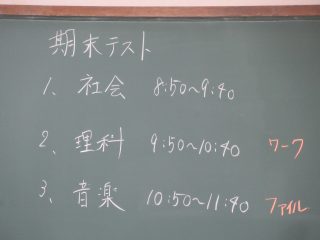 期末テスト
1、社会 8:50〜9:40
2、理科 9:50〜10:40 ワーク
3、音楽 10:50〜11:40 ファイル